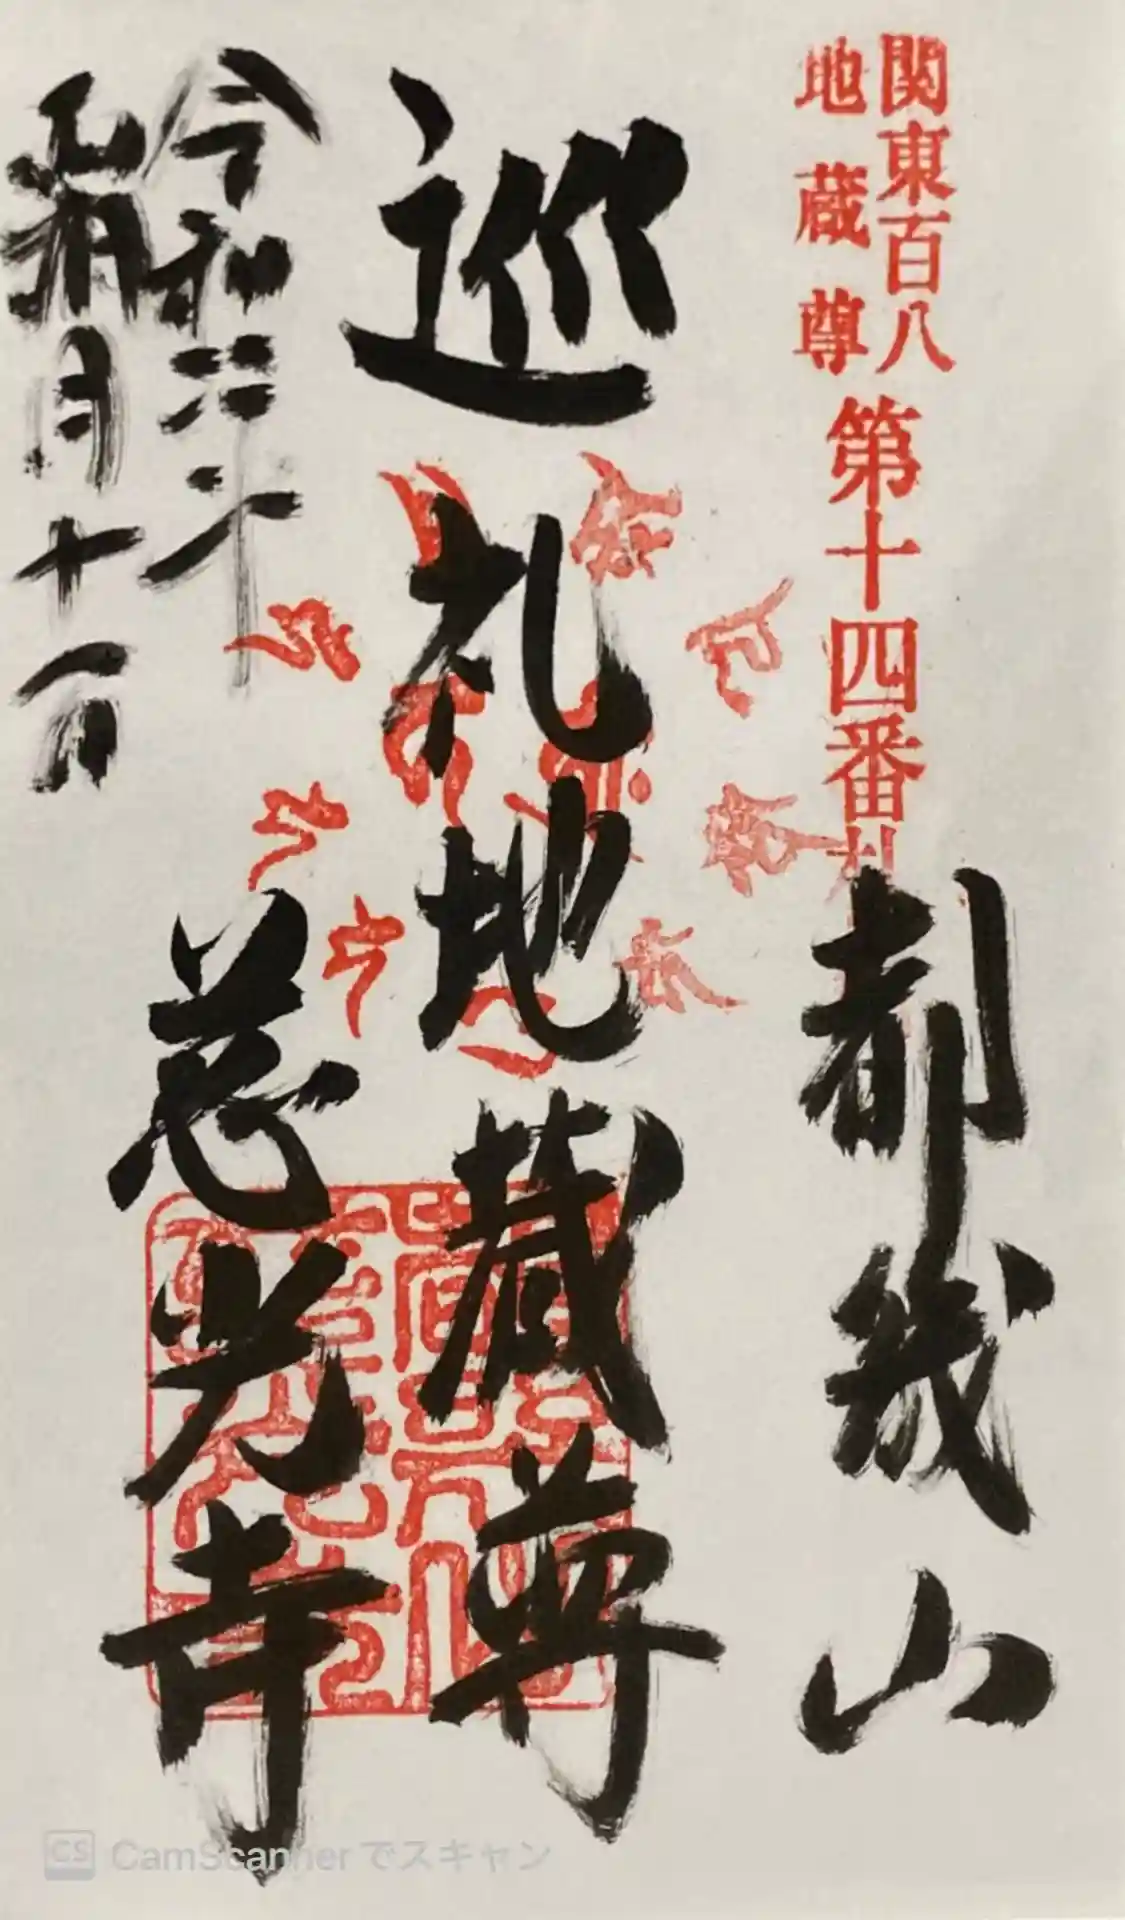 関東百八
地蔵尊
第十四番札
都幾山
巡礼地蔵尊
慈光寺
令和
月十一日
CamScanner でスキャン